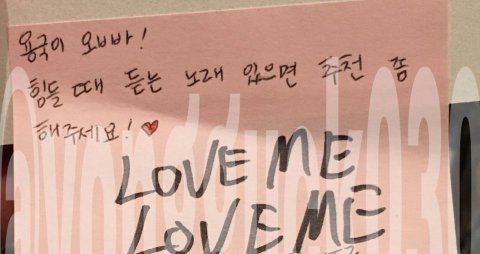 용국이 오빠!
힘들 때 듣는 노래 있으면 추천 좀
해주세요! ♥
LOVE ME
LOVE ME